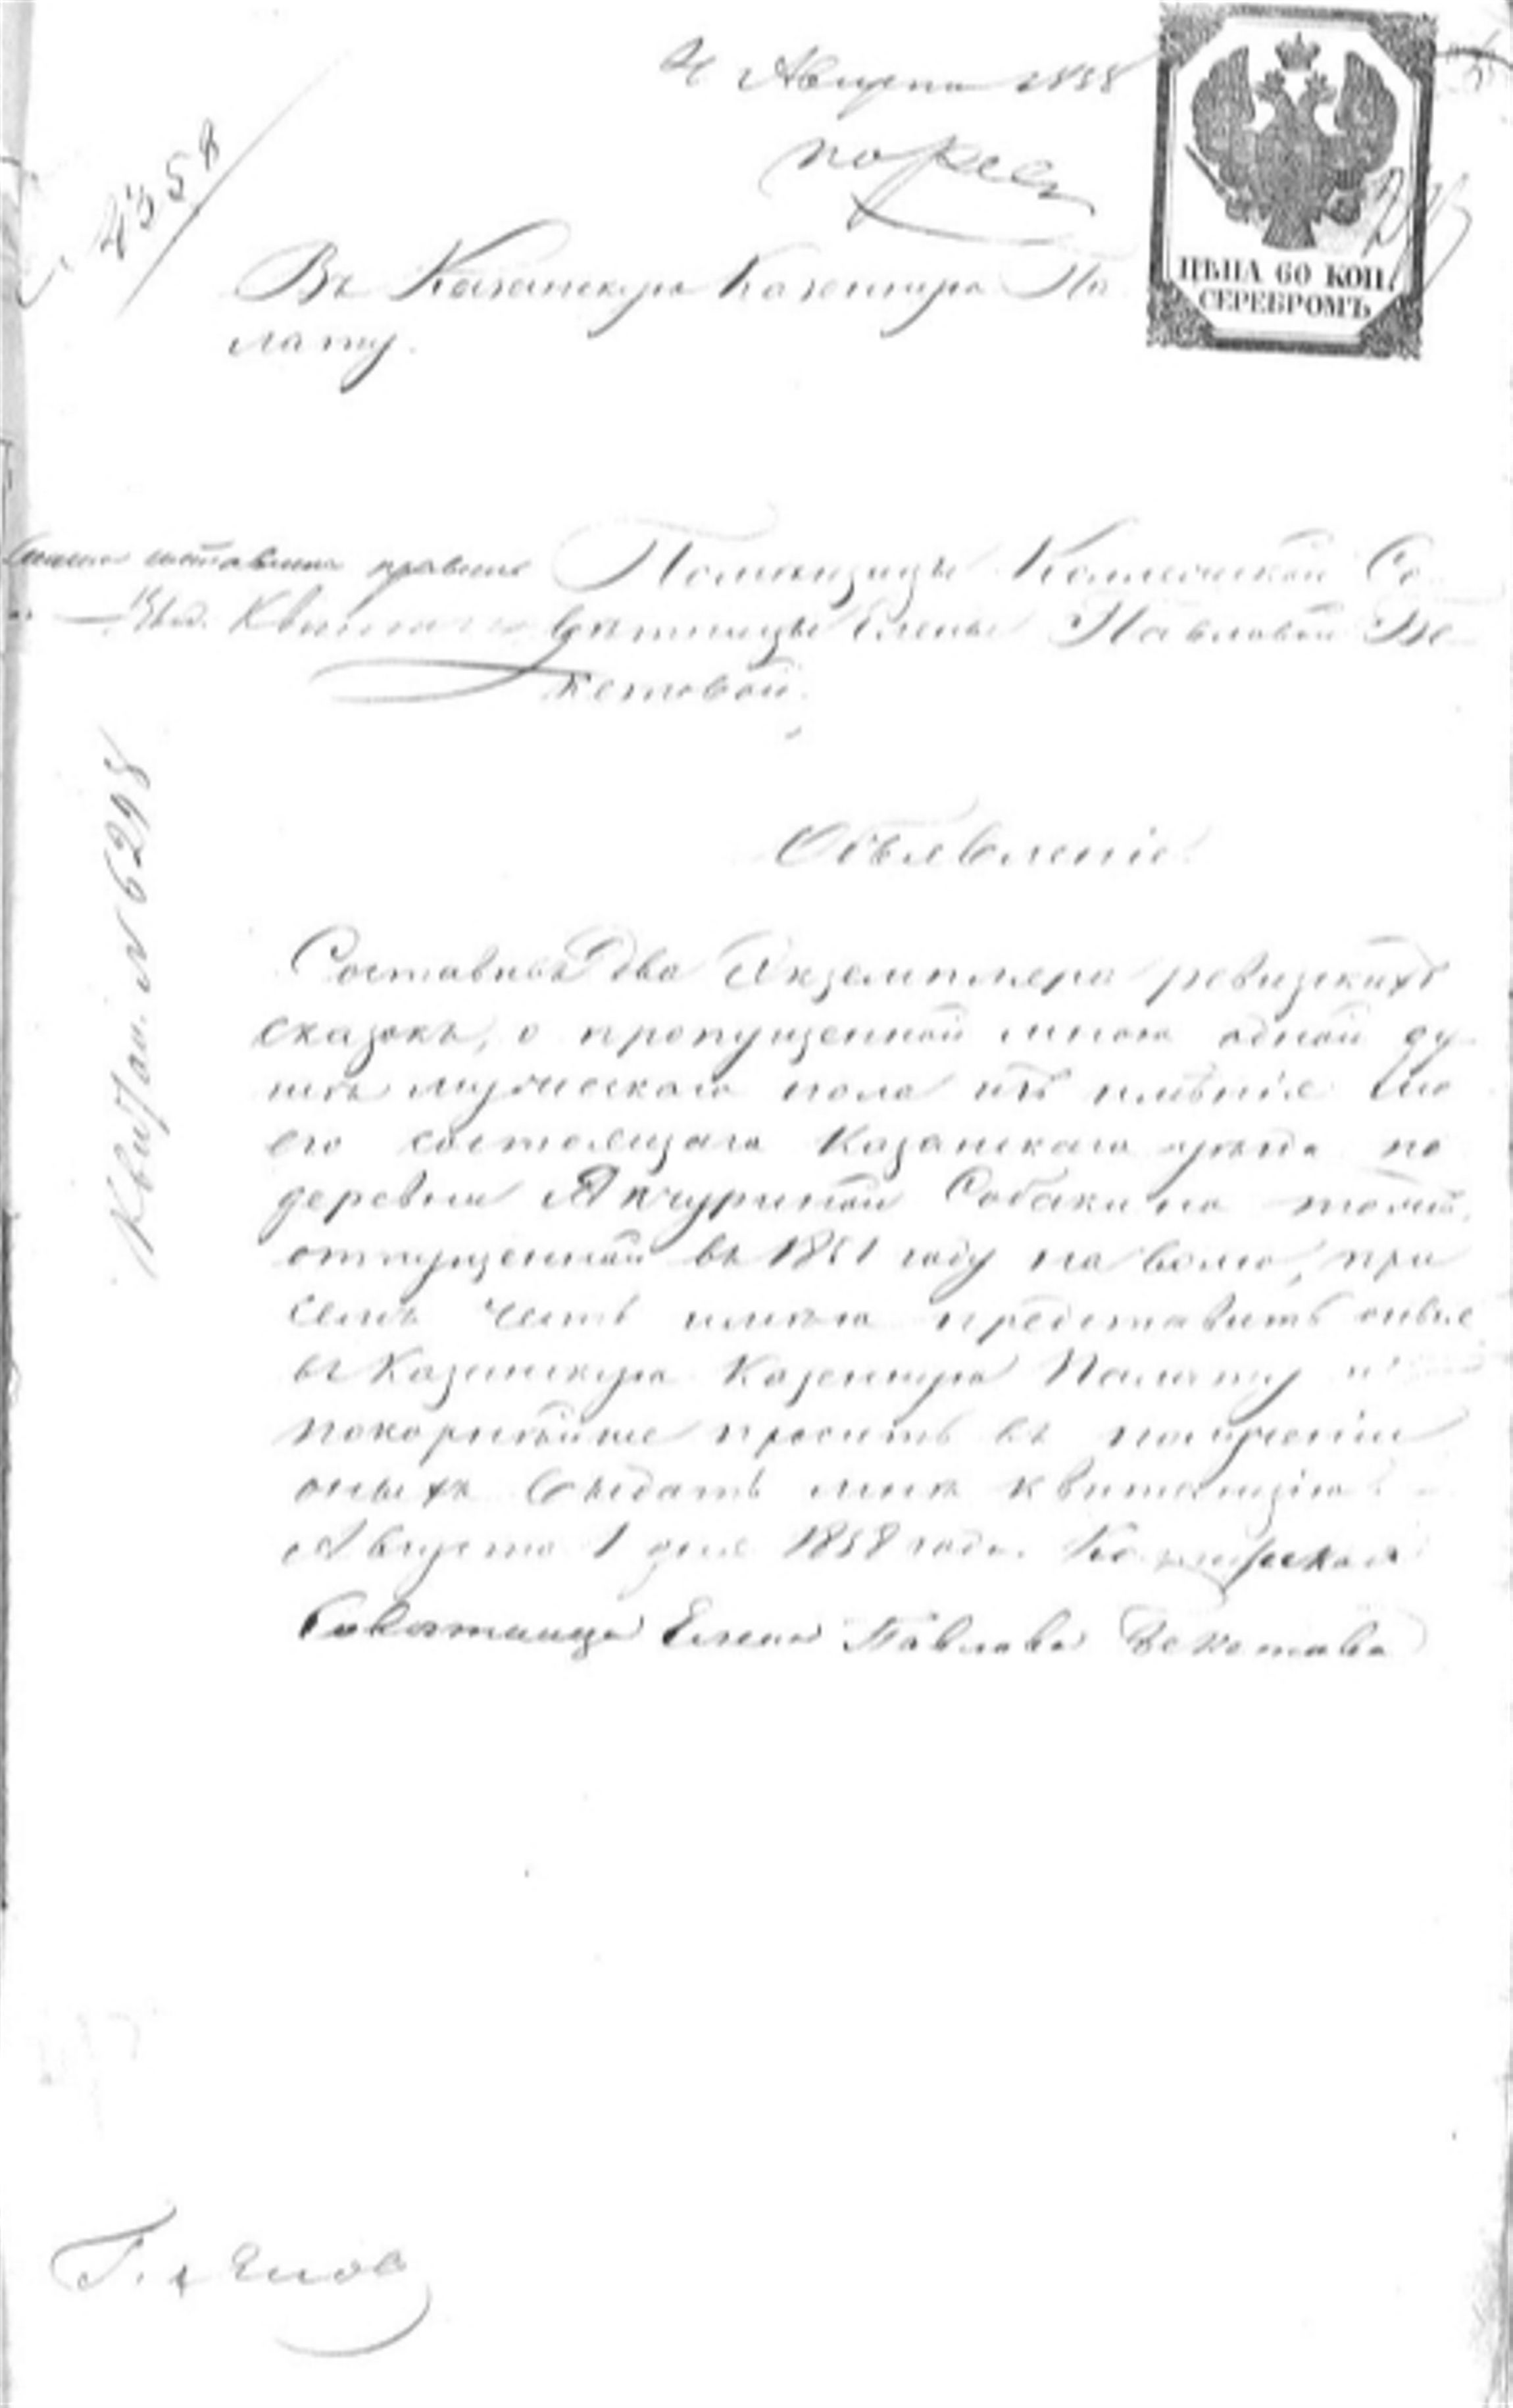 4 Августа 1858
4358
ЦѢНА 60 КОП.
СЕРЕБРОМЪ
Въ Казанскую Казенную Па
лату.
правильно Помѣщицы Коллежской Со
вѣтницы Елены Павловой Бе
кетовой.
Объявленіе
Квитан. № 6298
Составивъ два Экземпляра ревизскихъ
сказокъ, о пропущенной мною одной ду
шѣ мужескаго пола изъ имѣнія мо
его состоящаго Казанскаго уѣзда
деревни Собакино тожъ
отпущенной въ 1851 году на волю, при
семъ честь имѣю представить оные
въ Казанскую Казенную Палату и
покорнѣйше просить въ полученіи
оныхъ выдать мнѣ квитанцію.
Августа 1 дня 1858 года.
Совѣтница Елена Павлова Бекетова